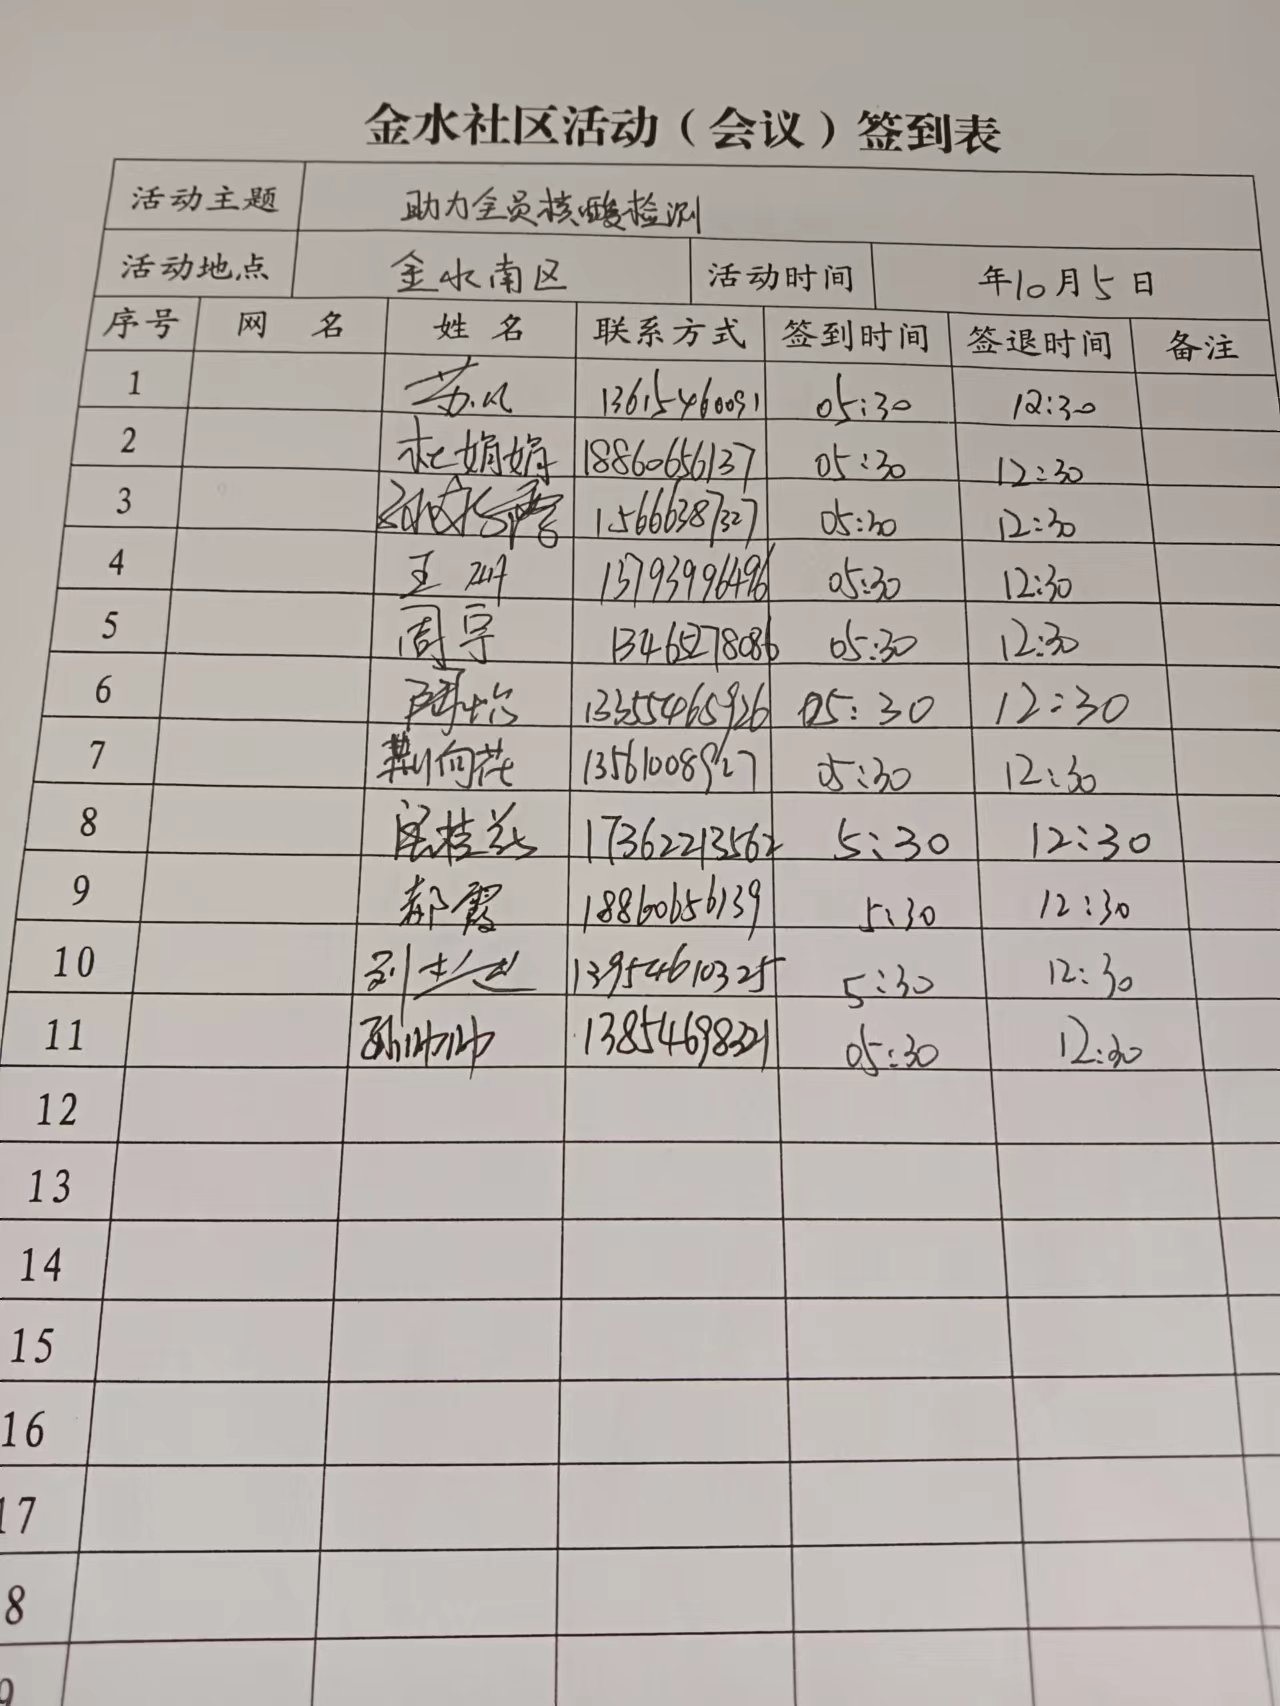 金水社区活动（会议）签到表
活动主题 助力全员核酸检测
活动地点 金水南区 活动时间 年10月5日
序号 网 名 姓 名 联系方式 签到时间 签退时间 备注
1 13615460091 05:30 12:30
2 杜娟娟 18860656137 05:30 12:30
3 15666387327 05:30 12:30
4 王 13793996496 05:30 12:30
5 周宇 13465278086 05:30 12:30
6 13355465926 05:30 12:30
7 荆向花 13561008927 05:30 12:30
8 17362213562 5:30 12:30
9 郝霞 18860656139 5:30 12:30
10 刘 13954610325 5:30 12:30
11 05:30 12:30
12
13
14
15
16
17
8
9